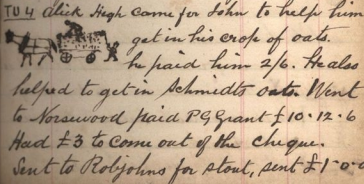 TU 4 Alick High came for John to help him
get in his crop of oats.
he paid him 2/6. He also
helped to get in Schmidts oats. Went
to Norsewood paid P G Grant £10.12.6
Had £3 to come out of the cheque.
Sent to Robjohns for stout, sent £1-0-0